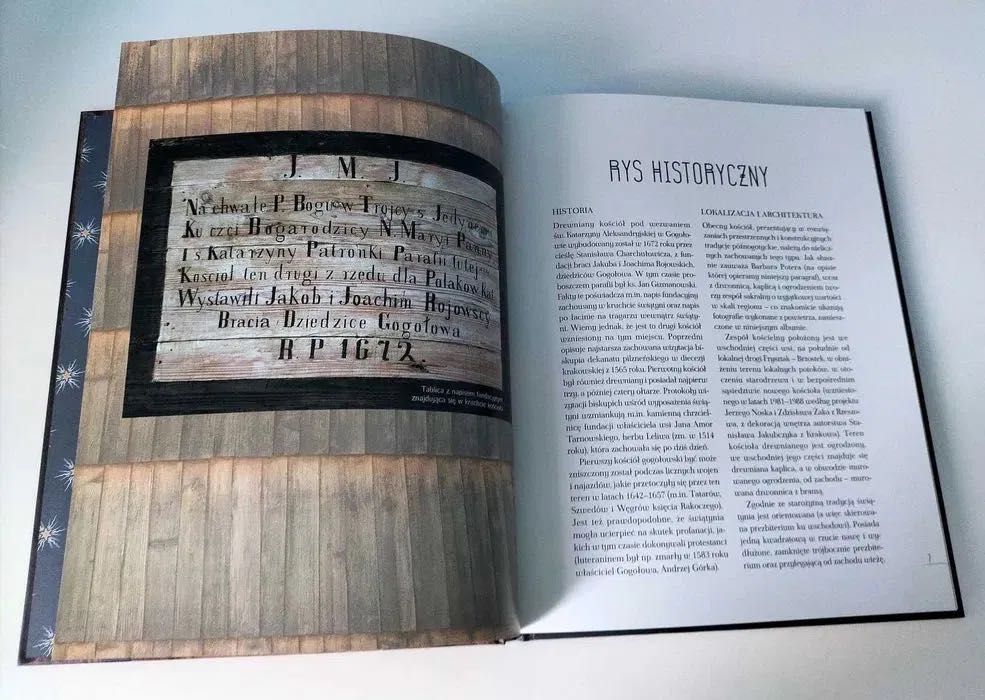 J. M. J
Na chwałe P. Bogu w Trojcy s. Jedyn
Ku czci Bogarodzicy N. Maryi Panny
I s Katarzyny Patronki Parafii tutej
Kosciol ten drugi z rzedu dla Polakow Kat
Wystawili Jakob i Joachim Rojowscy
Bracia Dziedzice Gogołowa
R P 1672.
Tablica z napisem fundacyjnym
znajdująca się w kruchcie kościoła
RYS HISTORYCZNY
HISTORIA
Drewniany kościół pod wezwaniem
św. Katarzyny Aleksandryjskiej w Gogoło-
wie wybudowany został w 1672 roku przez
cieślę Stanisława Charchutowicza, z fun-
dacji braci Jakuba i Joachima Rojowskich,
dziedziców Gogołowa. W tym czasie pro-
boszczem parafii był ks. Jan Guzmanowski.
Fakty te poświadcza m.in. napis fundacyjny
zachowany w kruchcie świątyni oraz napis
po łacinie na tragarzu wewnątrz świąty-
ni. Wiemy jednak, że jest to drugi kościół
wzniesiony na tym miejscu. Poprzedni
opisuje najstarsza zachowana wizytacja bi-
skupia dekanatu pilzneńskiego w diecezji
krakowskiej z 1565 roku. Pierwotny kościół
był również drewniany i posiadał najpierw
trzy, a później cztery ołtarze. Protokoły wi-
zytacji biskupich wśród wyposażenia świą-
tyni wzmiankują m.in. kamienną chrzciel-
nicę fundacji właściciela wsi Jana Amor
Tarnowskiego, herbu Leliwa (zm. w 1514
roku), która zachowała się po dziś dzień.
Pierwszy kościół gogołowski być może
zniszczony został podczas licznych wojen
i najazdów, jakie przetoczyły się przez ten
teren w latach 1642–1657 (m.in. Tatarów,
Szwedów i Węgrów księcia Rakoczego).
Jest też prawdopodobne, że świątynia
mogła ucierpieć na skutek profanacji, ja-
kich w tym czasie dokonywali protestanci
(luteraninem był np. zmarły w 1583 roku
właściciel Gogołowa, Andrzej Górka).
LOKALIZACJA I ARCHITEKTURA
Obecny kościół, prezentujący w rozwią-
zaniach przestrzennych i konstrukcyjnych
tradycje późnogotyckie, należy do nielicz-
nych zachowanych tego typu. Jak słusz-
nie zauważa Barbara Potera (na opisie
której opieramy niniejszy paragraf), wraz
z dzwonnicą, kaplicą i ogrodzeniem two-
rzy zespół sakralny o wyjątkowej wartości
w skali regionu – co znakomicie ukazują
fotografie wykonane z powietrza, zamiesz-
czone w niniejszym albumie.
Zespół kościelny położony jest we
wschodniej części wsi, na południe od
lokalnej drogi Frysztak – Brzostek, w obni-
żeniu terenu lokalnych potoków, w oto-
czeniu starodrzewu i w bezpośrednim
sąsiedztwie nowego kościoła (wzniesio-
nego w latach 1981–1988 według projektu
Jerzego Noska i Zdzisława Żaka z Rzeszo-
wa, z dekoracją wnętrza autorstwa Sta-
nisława Jakubczyka z Krakowa). Teren
kościoła drewnianego jest ogrodzony,
we wschodniej jego części znajduje się
drewniana kaplica, a w obwodzie muro-
wanego ogrodzenia, od zachodu – muro-
wana dzwonnica z bramą.
Zgodnie ze starożytną tradycją świą-
tynia jest orientowana (a więc skierowa-
na prezbiterium ku wschodowi). Posiada
jedną kwadratową w rzucie nawę i wy-
dłużone, zamknięte trójbocznie prezbite-
rium oraz przylegającą od zachodu wieżę,